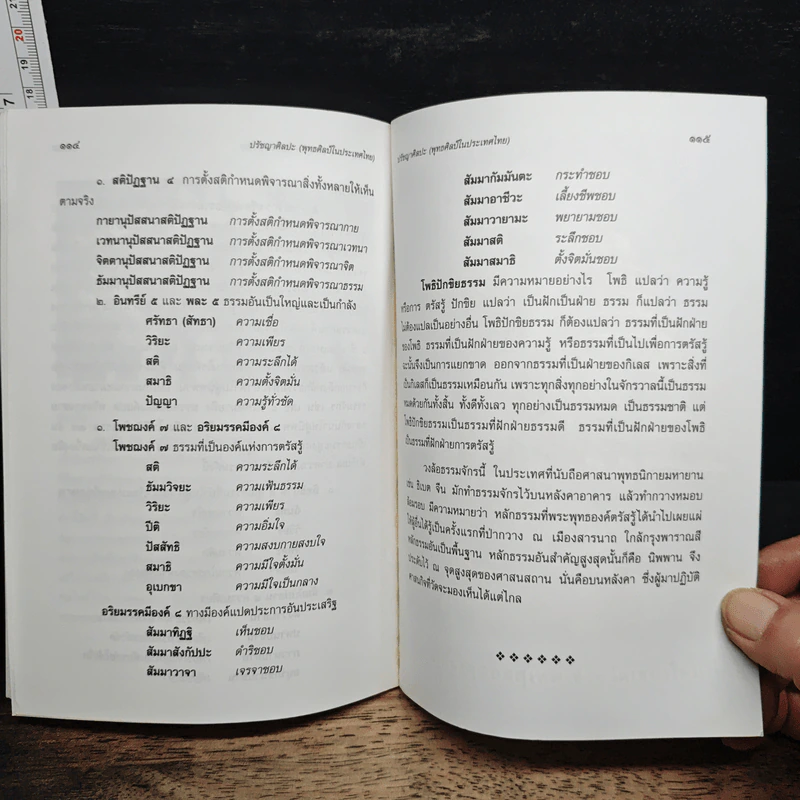 ๑๑๔
ปรัชญาศิลปะ (พุทธศิลป์ในประเทศไทย)
๑. สติปัฏฐาน ๔ การตั้งสติกำหนดพิจารณาสิ่งทั้งหลายให้เห็น
ตามจริง
กายานุปัสสนาสติปัฏฐาน การตั้งสติกำหนดพิจารณากาย
เวทนานุปัสสนาสติปัฏฐาน การตั้งสติกำหนดพิจารณาเวทนา
จิตตานุปัสสนาสติปัฏฐาน การตั้งสติกำหนดพิจารณาจิต
ธัมมานุปัสสนาสติปัฏฐาน การตั้งสติกำหนดพิจารณาธรรม
๒. อินทรีย์ ๕ และ พละ ๕ ธรรมอันเป็นใหญ่และเป็นกำลัง
ศรัทธา (สัทธา) ความเชื่อ
วิริยะ ความเพียร
สติ ความระลึกได้
สมาธิ ความตั้งจิตมั่น
ปัญญา ความรู้ทั่วชัด
๑. โพชฌงค์ ๗ และ อริยมรรคมีองค์ ๘
โพชฌงค์ ๗ ธรรมที่เป็นองค์แห่งการตรัสรู้
สติ ความระลึกได้
ธัมมวิจยะ ความเฟ้นธรรม
วิริยะ ความเพียร
ปีติ ความอิ่มใจ
ปัสสัทธิ ความสงบกายสงบใจ
สมาธิ ความมีใจตั้งมั่น
อุเบกขา ความมีใจเป็นกลาง
อริยมรรคมีองค์ ๘ ทางมีองค์แปดประการอันประเสริฐ
สัมมาทิฏฐิ เห็นชอบ
สัมมาสังกัปปะ ดำริชอบ
สัมมาวาจา เจรจาชอบ
ปรัชญาศิลปะ (พุทธศิลป์ในประเทศไทย)
๑๑๕
สัมมากัมมันตะ กระทำชอบ
สัมมาอาชีวะ เลี้ยงชีพชอบ
สัมมาวายามะ พยายามชอบ
สัมมาสติ ระลึกชอบ
สัมมาสมาธิ ตั้งจิตมั่นชอบ
โพธิปักขิยธรรม มีความหมายอย่างไร โพธิ แปลว่า ความรู้
หรือการ ตรัสรู้ ปักขิย แปลว่า เป็นฝักเป็นฝ่าย ธรรม ก็แปลว่า ธรรม
ไม่ต้องแปลเป็นอย่างอื่น โพธิปักขิยธรรม ก็ต้องแปลว่า ธรรมที่เป็นฝักฝ่าย
ของโพธิ ธรรมที่เป็นฝักฝ่ายของความรู้ หรือธรรมที่เป็นไปเพื่อการตรัสรู้
ฉะนั้นจึงเป็นการแยกขาด ออกจากธรรมที่เป็นฝ่ายของกิเลส เพราะสิ่งที่
เป็นกิเลสก็เป็นธรรมเหมือนกัน เพราะทุกสิ่งทุกอย่างในจักรวาลนี้เป็นธรรม
หมดด้วยกันทั้งสิ้น ทั้งดีทั้งเลว ทุกอย่างเป็นธรรมหมด เป็นธรรมชาติ แต่
โพธิปักขิยธรรมเป็นธรรมที่ฝักฝ่ายธรรมดี ธรรมที่เป็นฝักฝ่ายของโพธิ
เป็นธรรมที่ฝักฝ่ายการตรัสรู้
วงล้อธรรมจักรนี้ ในประเทศที่นับถือศาสนาพุทธนิกายมหายาน
เช่น ธิเบต จีน มักทำธรรมจักรไว้บนหลังคาอาคาร แล้วทำกวางหมอบ
ล้อมรอบ มีความหมายว่า หลักธรรมที่พระพุทธองค์ตรัสรู้ได้นำไปเผยแผ่
ให้ผู้อื่นได้รู้เป็นครั้งแรกที่ป่ากวาง ณ เมืองสารนาถ ใกล้กรุงพาราณสี
หลักธรรมอันเป็นพื้นฐาน หลักธรรมอันสำคัญสูงสุดนั้นก็คือ นิพพาน จึง
ประดับไว้ ณ จุดสูงสุดของศาสนสถาน นั่นคือบนหลังคา ซึ่งผู้มาปฏิบัติ
ศาสนกิจที่วัดจะมองเห็นได้แต่ไกล
21
20
19
18
7